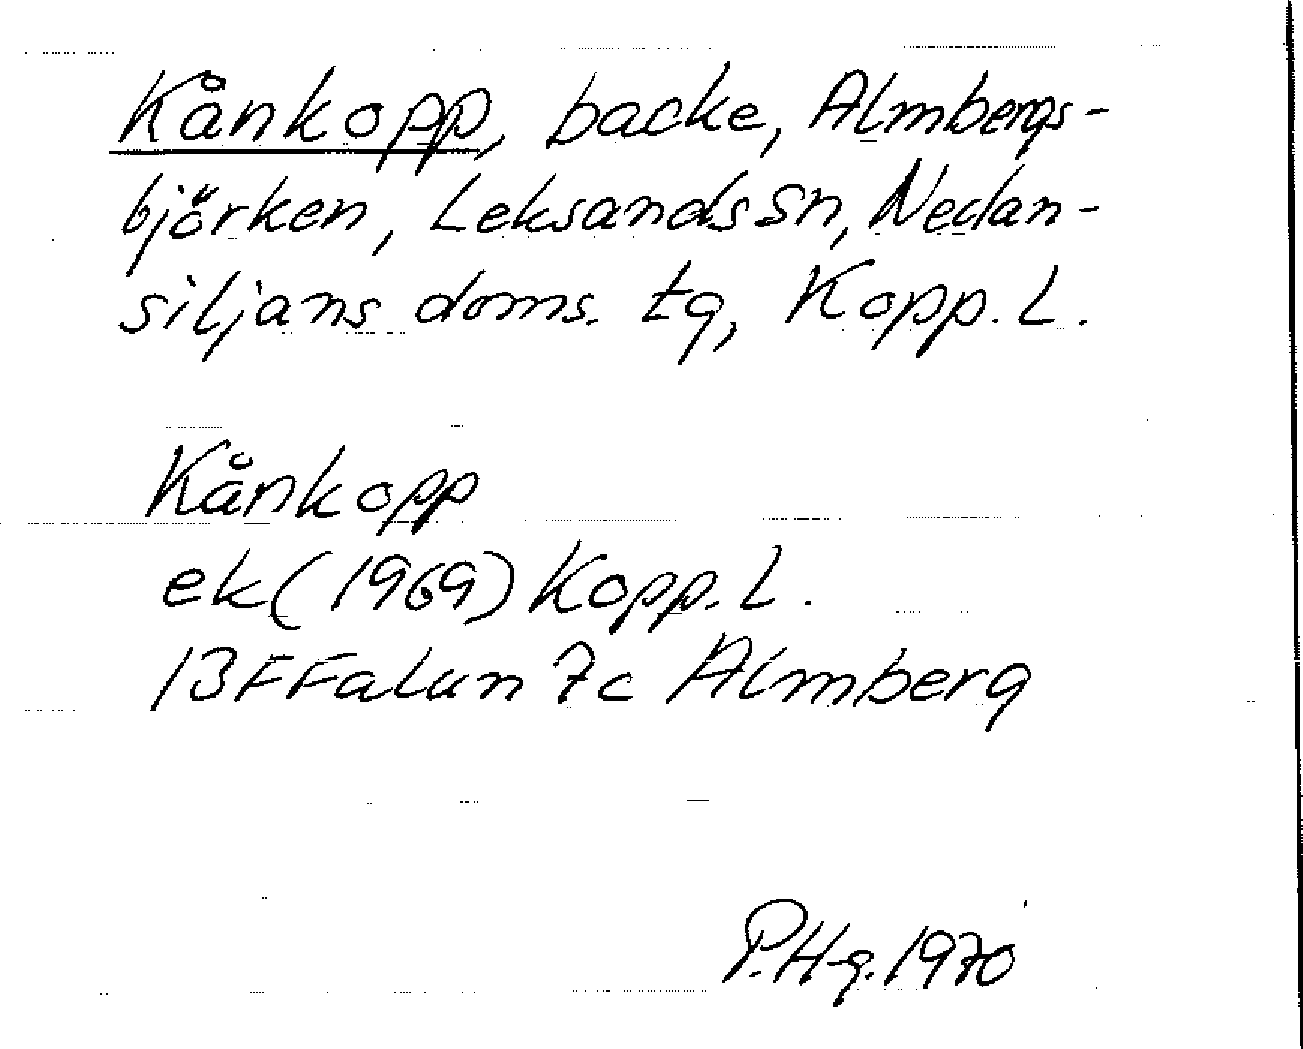 Kånkopp, backe, Almbergs-
björken, Leksands sn, Nedan-
siljans doms. tg, Kopp. L.
Kånkopp
ek (1969) Kopp. L.
13F Falun 7c Almberg
P.Hg. 1970